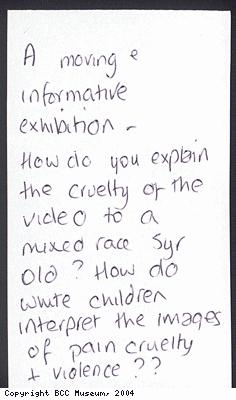 A moving e
informative
exhibition -
How do you explain
the cruelty of the
video to a
mixed race 5yr
old? How do
white children
interpret the images
of pain cruelty
+ violence ??
Copyright BCC Museum, 2004